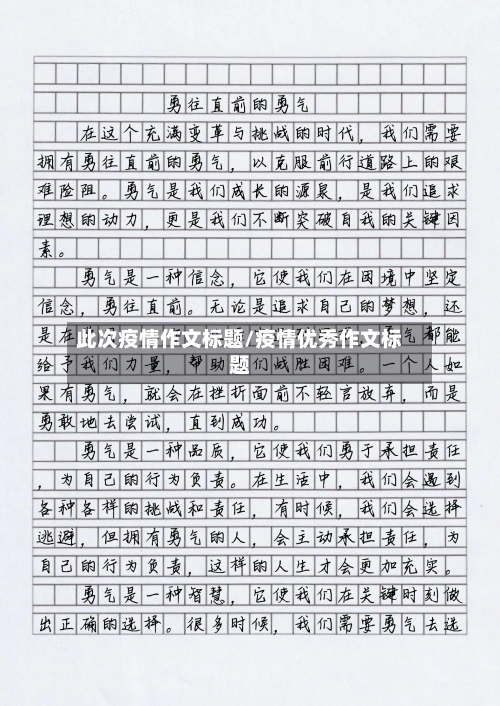 勇往直前的勇气
在这个充满变革与挑战的时代，我们需要
拥有勇往直前的勇气，以克服前行道路上的艰
难险阻。勇气是我们成长的源泉，是我们追求
理想的动力，更是我们不断突破自我的关键因
素。
勇气是一种信念，它使我们在困境中坚定
信念，勇往直前。无论是追求自己的梦想，还
是在
气都能
此次疫情作文标题/疫情优秀作文标
题
给予我们力量，帮助我们战胜困难。一个人如
果有勇气，就会在挫折面前不轻言放弃，而是
勇敢地去尝试，直到成功。
勇气是一种品质，它使我们勇于承担责任
，为自己的行为负责。在生活中，我们会遇到
各种各样的挑战和责任，有时候，我们会选择
逃避，但拥有勇气的人，会主动承担责任，为
自己的行为负责，这样的人生才会更加充实。
勇气是一种智慧，它使我们在关键时刻做
出正确的选择。很多时候，我们需要勇气去选